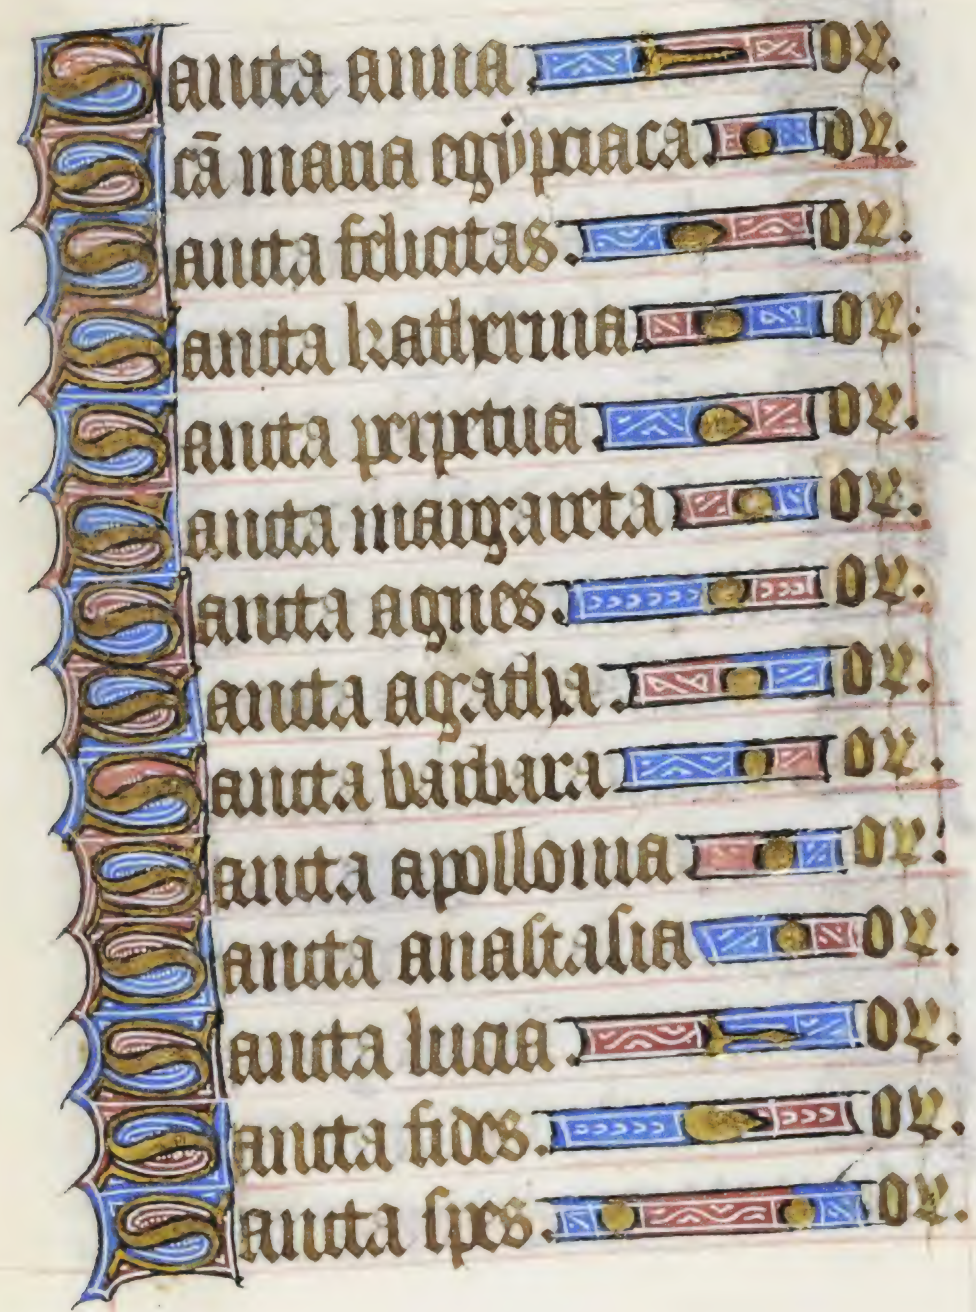 Sancta anna. or.
Scā maria egypciaca. or.
Sancta felicitas. or.
Sancta katherina or.
Sancta perpetua or.
Sancta margareta or.
Sancta agnes. or.
Sancta agatha. or.
Sancta barbara or.
Sancta apollonia or.
Sancta anastasia or.
Sancta lucia. or.
Sancta fides. or.
Sancta spes. or.